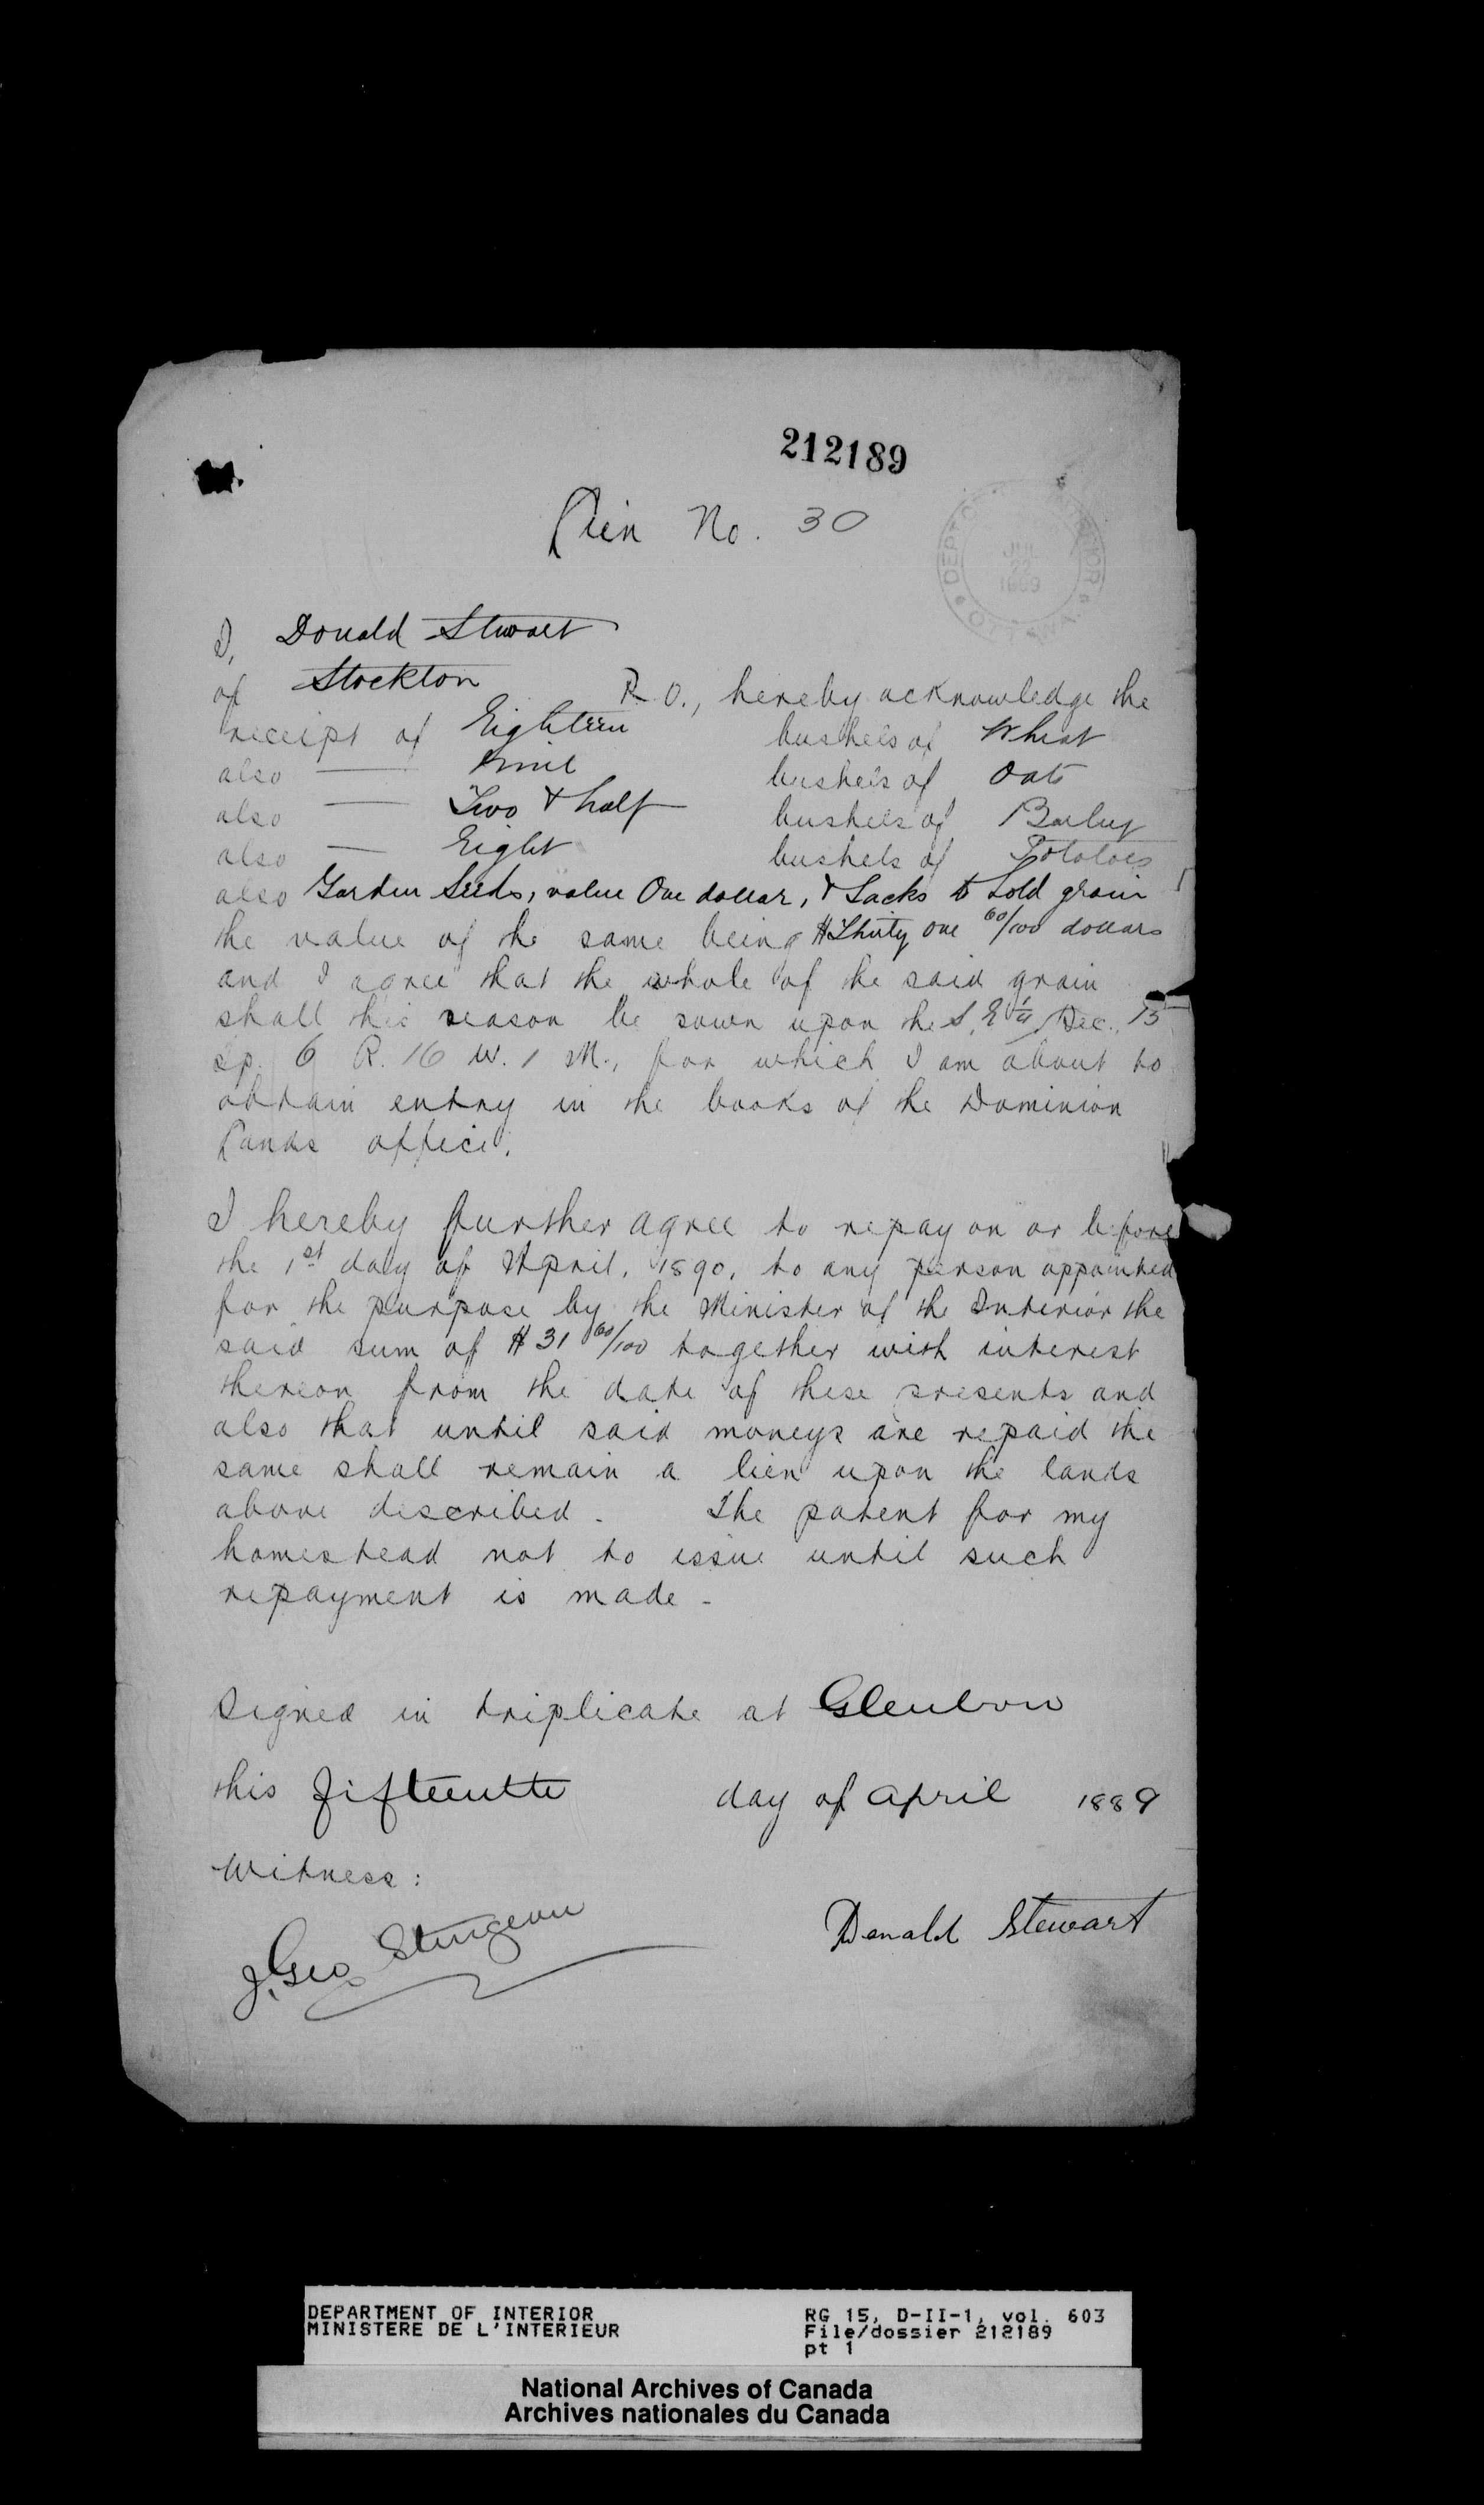 212189
Lien No. 30
DEPT OF INTERIOR
JUL
22
1889
OTTAWA
I, Donald Stewart
of Stockton P.O., hereby acknowledge the
receipt of Eighteen bushels of Wheat
also — Nine bushels of Oats
also — Two & half bushels of Barley
also — Eight bushels of Potatoes
also Garden Seeds, value One dollar, & Sacks to hold grain
the value of the same being $Thirty one 60/100 dollars
and I agree that the whole of the said grain
shall this season be sown upon the S. E 1/4 Sec.
Tp. 6 R. 16 W. 1 M., for which I am about to
obtain entry in the books of the Dominion
Lands office.
I hereby further agree to repay on or before
the 1st day of April, 1890, to any person appointed
for the purpose by the Minister of the Interior the
said sum of $31 60/100 together with interest
thereon from the date of these presents and
also that until said moneys are repaid the
same shall remain a lien upon the lands
above described. The patent for my
homestead not to issue until such
repayment is made -
Signed in triplicate at Glenboro
this fifteenth day of April 1889
Witness:
J. Geo Sturgeon
Donald Stewart
DEPARTMENT OF INTERIOR
MINISTERE DE L'INTERIEUR
RG 15, D-II-1, vol. 603
File/dossier 212189
pt 1
National Archives of Canada
Archives nationales du Canada